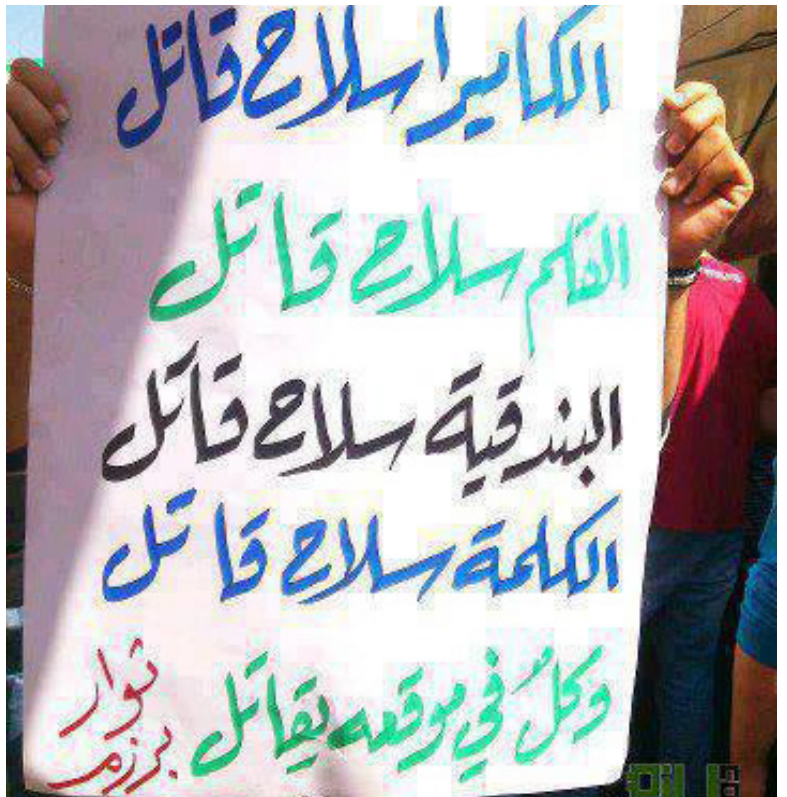 الكاميرا سلاح قاتل
القلم سلاح قاتل
البندقية سلاح قاتل
الكلمة سلاح قاتل
وكلٌ في موقعه يقاتل
ثوار
برزة